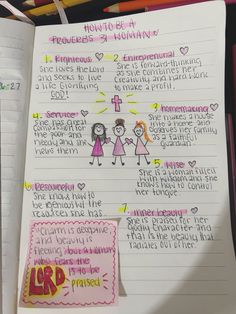 HOW TO BE A
PROVERBS 31 WOMAN
1. Righteous
She loves the Lord
and seeks to live
a life Glorifying
GOD!
2. Entreprenurial
She is forward-thinking
as she combines her
creativity and hard work
to make a profit.
3 homemaking
She makes a house
like a home and
serves her family
as a faithful
guardian
4. Service
She has great
compassion for
the poor and
needy and she
helps them
5. Wise
She is a woman filled
with wisdom and she
knows how to control
her tongue
Resourceful
She knows how to
the resources she has
7 Inner beauty
She is praised for her
Godly Character and
that is the beauty that
radiates out of her.
Charm is deceptive,
and beauty is
fleeting but a woman
who fears the
LORD is to be
praised
27